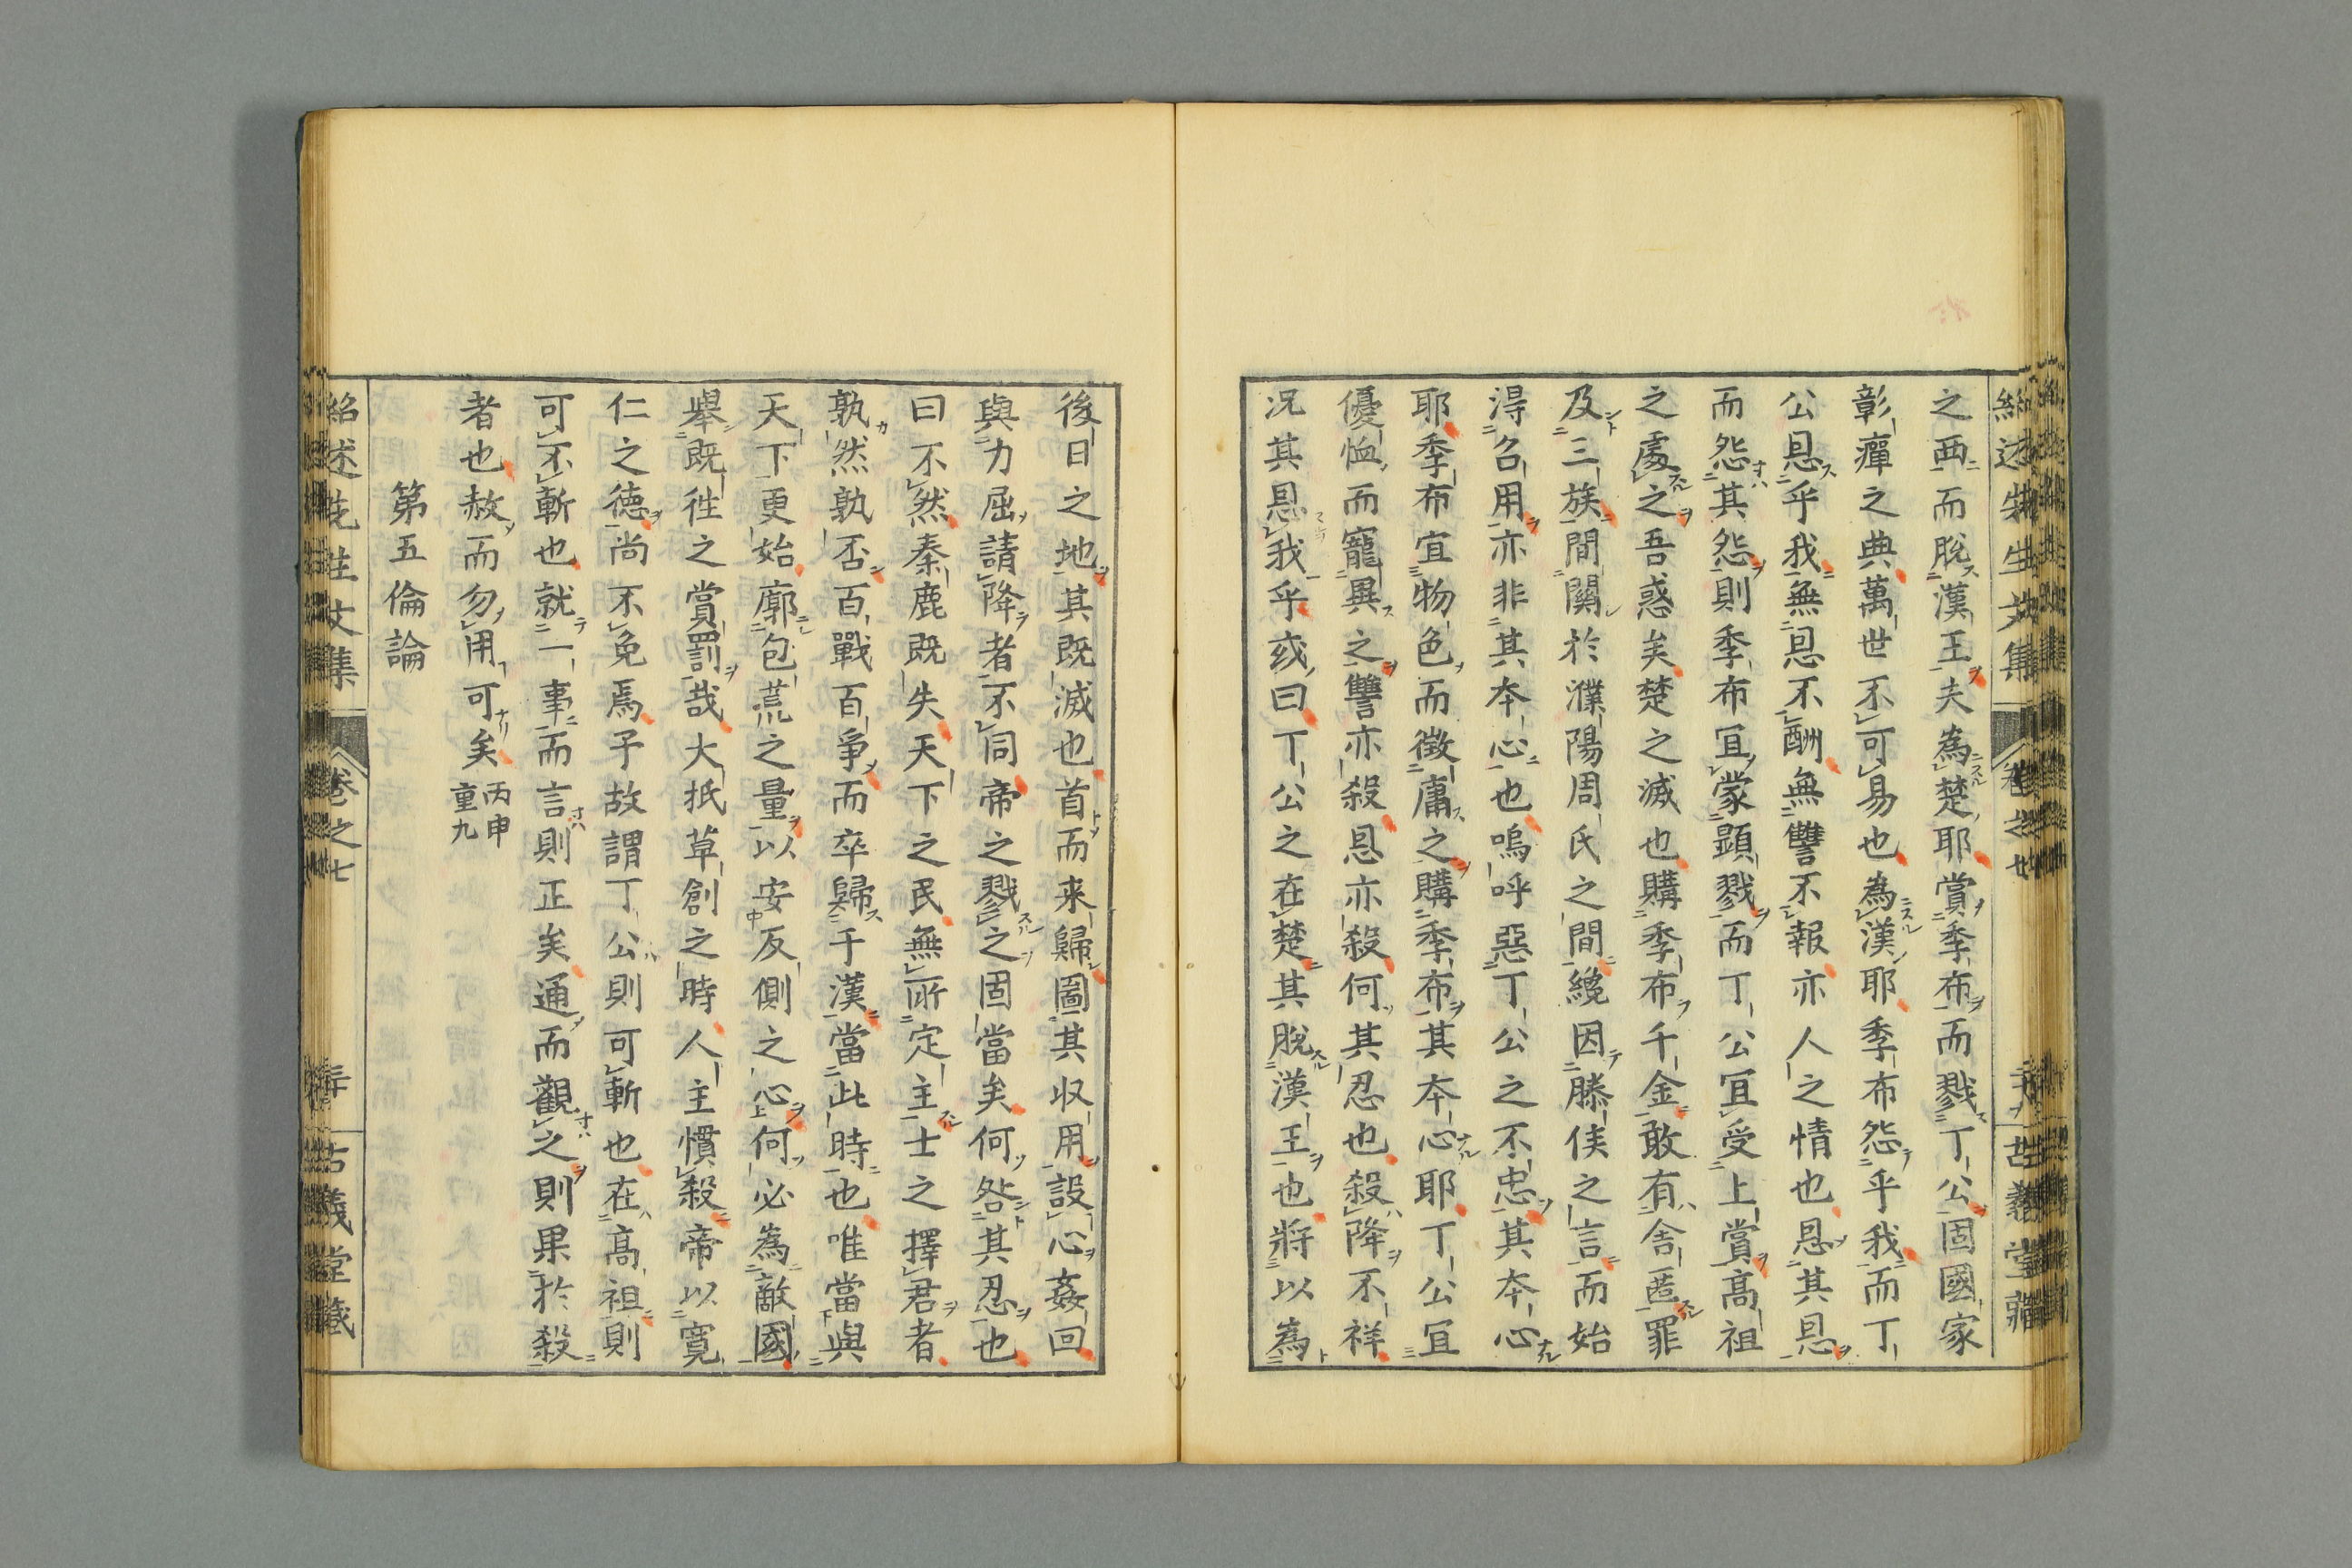 之西而脫漢王夫為楚耶賞季布而戮丁公固國家
彰癉之典萬世不可易也為漢耶季布怨乎我而丁
公恩乎我無恩不酬無讐不報亦人之情也恩其恩
而怨其怨則季布宜蒙顯戮而丁公宜受上賞高祖
之處之吾惑矣楚之滅也購季布千金敢有舍匿罪
及三族間關於濮陽周氏之間纔因滕侯之言而始
得召用亦非其本心也嗚呼惡丁公之不忠其本心
耶季布宜物色而徵庸之購季布其本心耶丁公宜
優恤而寵異之讐亦殺恩亦殺何其忍也殺降不祥
况其恩我乎或曰丁公之在楚其脫漢王也將以為
後日之地其既滅也首而来歸圖其収用設心姦回
與力屈請降者不同帝之戮之固當矣何咎其忍也
曰不然秦鹿既失天下之民無所定主士之擇君者
孰然孰否百戰百爭而卒歸于漢當此時也唯當與
天下更始廓包荒之量以安反側之心何必為敵國
舉既徃之賞罰哉大抵草創之時人主慣殺帝以寬
仁之德尚不免焉予故謂丁公則可斬也在高祖則
可不斬也就一事而言則正矣通而觀之則果於殺
者也赦而勿用可矣 丙申重九
第五倫論
紹述先生文集 卷之七 古義堂藏